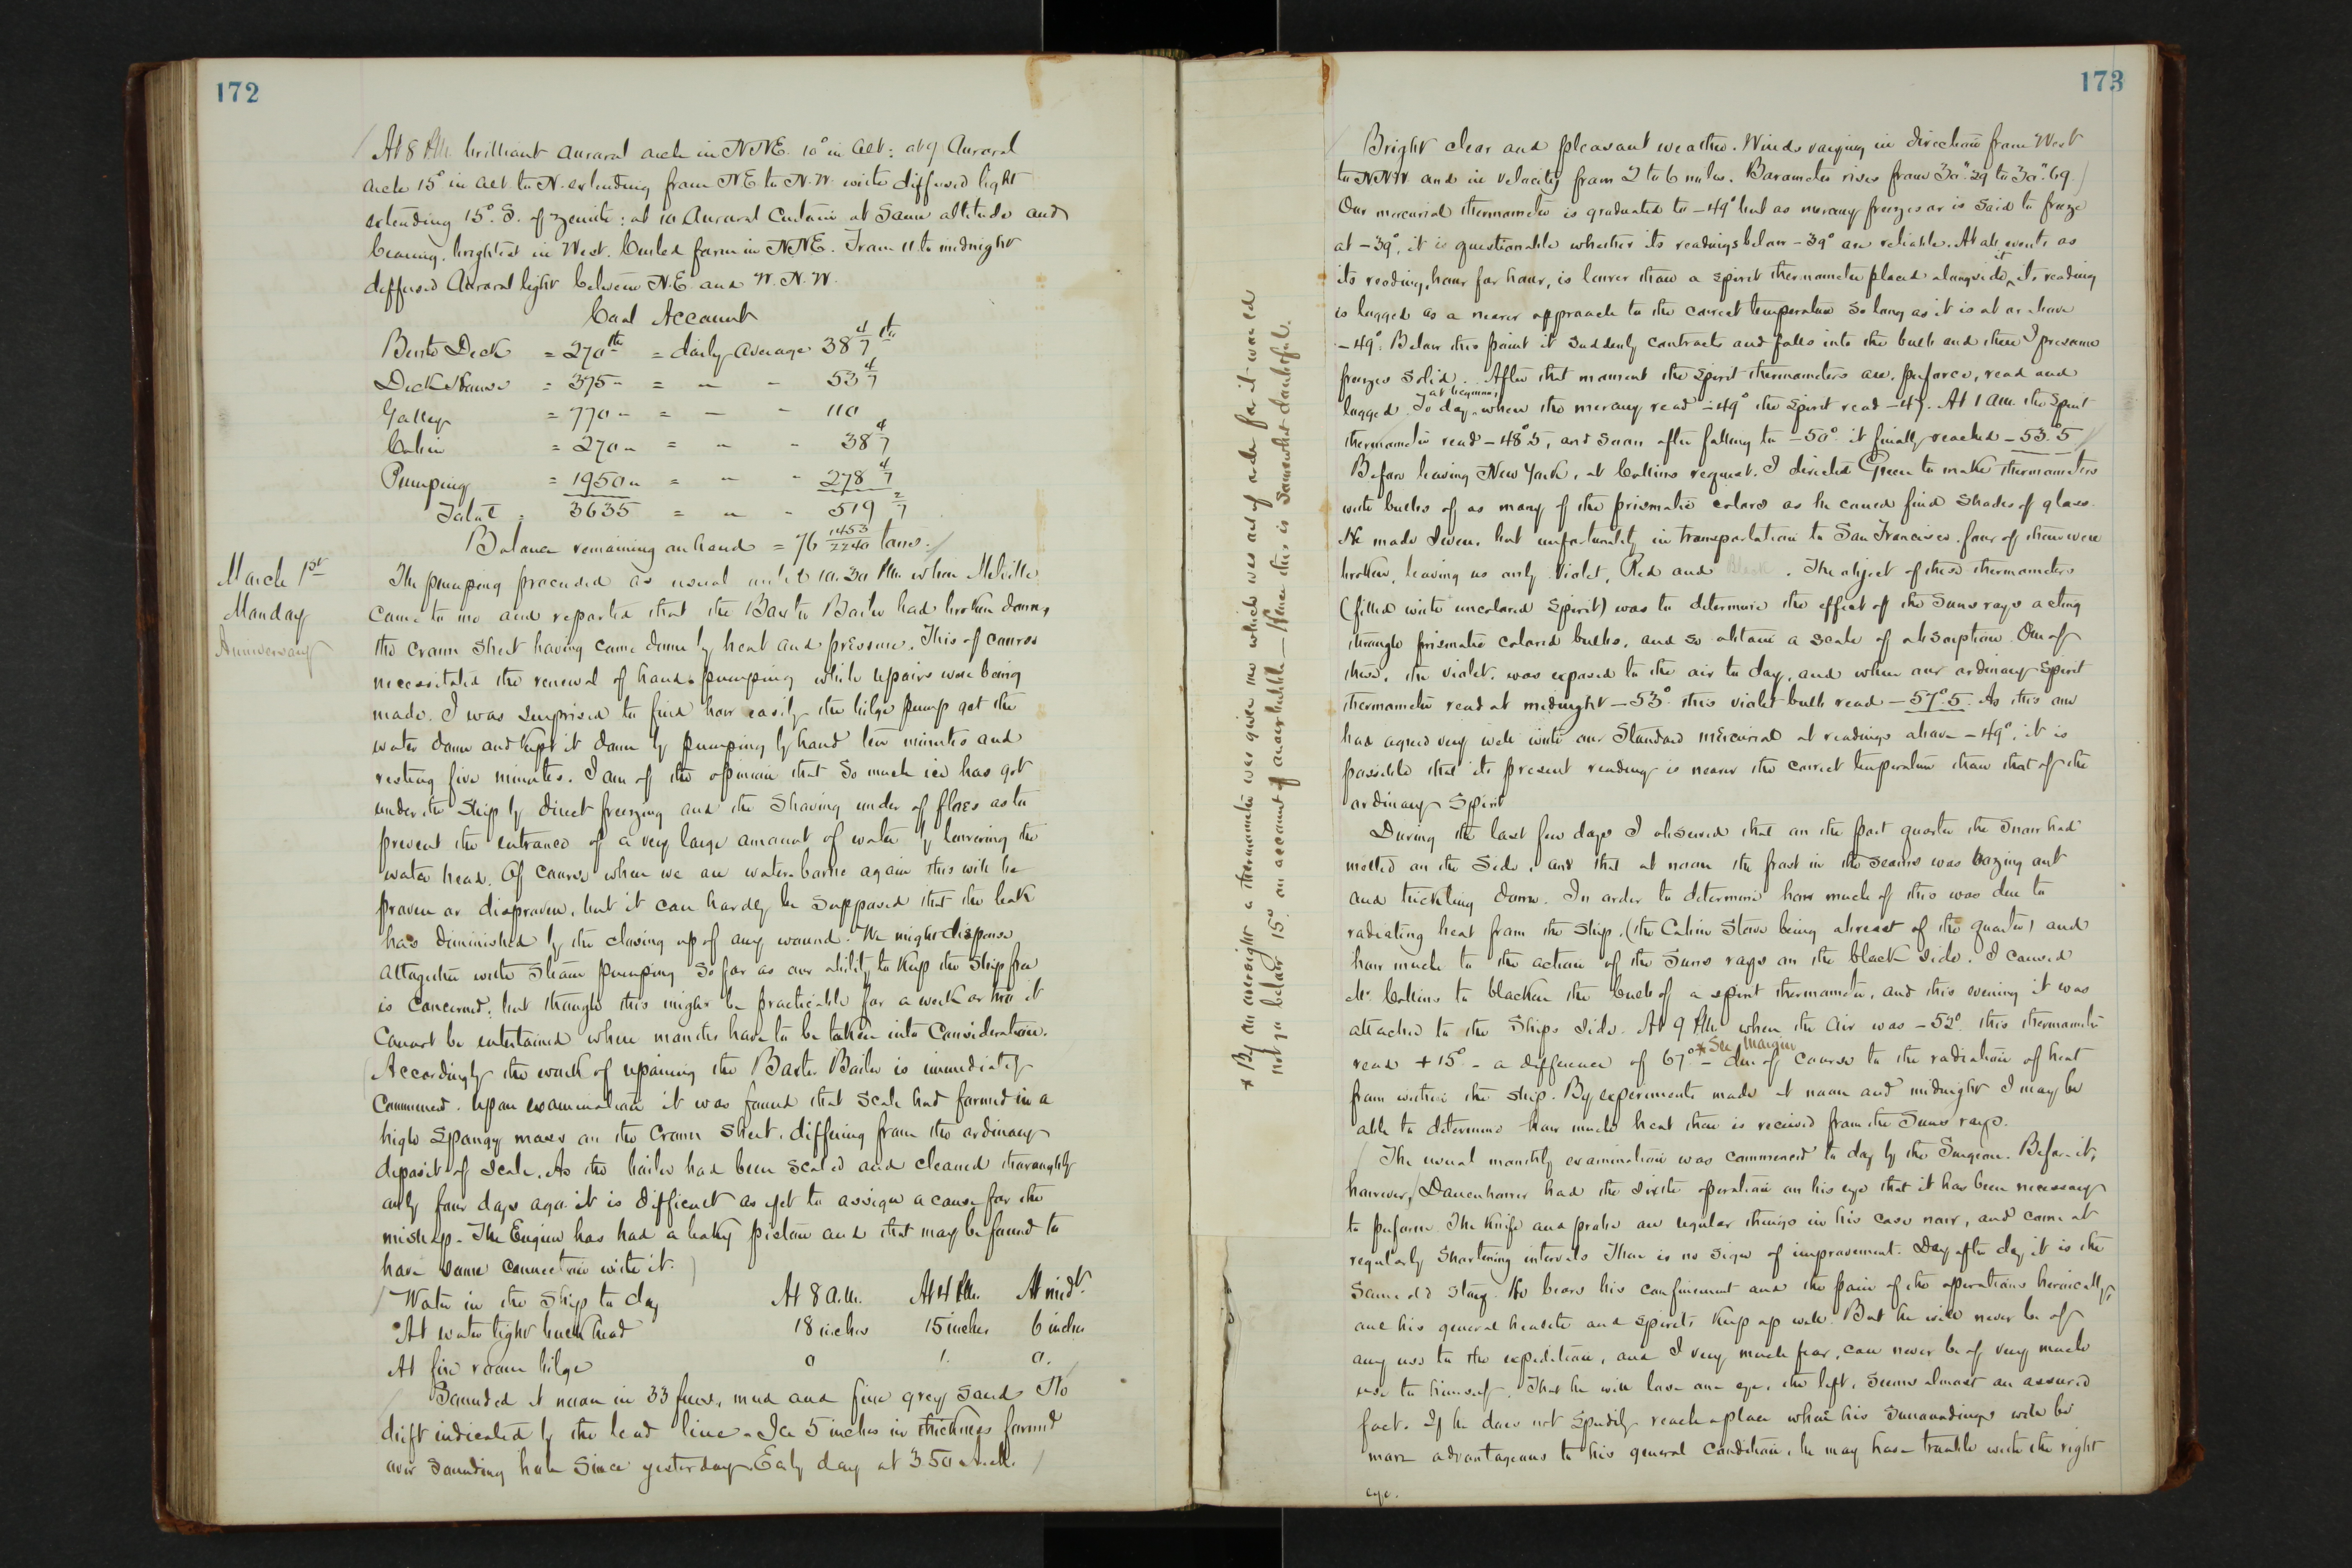 172
At 8 P.M. brilliant auroral arch in NNE. 10° in alt: at 9 Auroral
arch 15° in alt. to N. extending from NE to N.W. with diffused light
extending 15° S. of zenith: at 10 Auroral Curtain at same altitude and
bearing, brightest in West. Curled form in NNE. From 11 to midnight
diffused Auroral light between N.E. and W.N.W.
Coal Account
Berth Deck = 270 lbs = daily average 38 4/7 lbs
Deck House = 375 " = " " 53 4/7
Galley = 770 " = " " 110
Cabin = 270 " = " " 38 4/7
Pumping = 1950 " = " " 278 4/7
Total = 3635 = " " 519 2/7
Balance remaining on hand = 76 1453/2240 tons.
March 1st
Monday
Anniversary
The pumping proceeded as usual until 10.30 P.M. when Melville
came to me and reported that the Baxter Boiler had broken down,
the crown sheet having come down by heat and pressure. This of course
necessitated the renewal of hand pumping while repairs were being
made. I was surprised to find how easily the bilge pump got the
water down and kept it down by pumping by hand ten minutes and
resting five minutes. I am of the opinion that so much ice has got
under the ship by direct freezing and the shoving under of floes as to
prevent the entrance of a very large amount of water by lowering the
water head. Of course when we are water-borne again this will be
proven or disproven, but it can hardly be supposed that the leak
has diminished by the closing up of any wound. We might dispense
altogether with steam pumping so far as our ability to keep the ship free
is concerned, but though this might be practicable for a week or two it
cannot be entertained when months have to be taken into consideration.
Accordingly the work of repairing the Baxter Boiler is immediately
commenced. Upon examination it was found that scale had formed in a
high spongy mass on the crown sheet, differing from the ordinary
deposit of scale. As the boiler had been scaled and cleaned thoroughly
only four days ago it is difficult as yet to assign a cause for the
mishap. The Engine has had a leaky piston and that may be found to
have some connection with it.
Water in the ship to day At 8 a.m. At 4 P.M. At midt.
At water tight bulkhead 18 inches 15 inches 6 inches
At fire room bilge 0 1. 0.
Sounded at noon in 33 fms, mud and fine grey sand No
drift indicated by the lead line. Ice 5 inches in thickness formed
over sounding hole since yesterday. Early day at 3.50 A.M.
* By an oversight a thermometer was given me which was out of order for it would
not go below 15° on account of an air bubble — Hence this is somewhat doubtful.
173
Bright clear and pleasant weather. Winds varying in direction from West
to NNW and in velocity from 2 to 6 miles. Barometer rises from 30".29 to 30".69.
Our mercurial thermometer is graduated to -49° but as mercury freezes or is said to freeze
at -39°, it is questionable whether its readings below -39° are reliable. At all events as
its reading, hour for hour, is lower than a spirit thermometer placed alongside it, its reading
is logged as a nearer approach to the correct temperature so long as it is at or above
-49°. Below this point it suddenly contracts and falls into the bulb and there I presume
freezes solid. After that moment the spirit thermometers are, perforce, read and
logged. To day at beginning when the mercury read -49° the spirit read -47. At 1 A.M. the Spirit
thermometer read -48°.5, and soon after falling to -50° it finally reached -53°.5
Before leaving New York, at Collins request, I directed Green to make thermometers
with bulbs of as many of the prismatic colors as he could find shades of glass.
He made seven, but unfortunately in transportation to San Francisco, four of them were
broken, leaving us only Violet, Red and Black. The object of these thermometers
(filled with uncolored spirit) was to determine the effect of the Suns rays acting
through prismatic colored bulbs, and so obtain a scale of absorption. One of
these, the violet, was exposed to the air to day, and when our ordinary Spirit
thermometer read at midnight -53° this violet bulb read -57°.5. As this one
had agreed very well with our Standard mercurial at readings above -49°, it is
possible that its present reading is nearer the correct temperature than that of the
ordinary Spirit
During the last few days I observed that on the port quarter the snow had
melted on the side, and that at noon the frost in the seams was oozing out
and trickling down. In order to determine how much of this was due to
radiating heat from the ship, (the Cabin Stove being abreast of the quarter) and
how much to the action of the Suns rays on the black side, I caused
Mr. Collins to blacken the bulb of a spirit thermometer, and this evening it was
attached to the Ships side. At 9 P.M. when the Air was -52° this thermometer
read +15° - a difference of 67° * See Margin - due of course to the radiation of heat
from within the ship. By experiments made at noon and midnight I may be
able to determine how much heat then is received from the Suns rays.
The usual monthly examination was commenced to day by the Surgeon. Before it,
however, Danenhower had the sixth operation on his eye that it has been necessary
to perform. The Knife and probe are regular things in his case now, and come at
regularly shortening intervals There is no sign of improvement. Day after day it is the
same old story. He bears his confinement and the pain of the operations heroically,
and his general health and spirits keep up well. But he will never be of
any use to the expedition, and I very much fear, can never be of very much
use to himself. That he will lose one eye, the left, seems almost an assured
fact. If he does not speedily reach a place where his surroundings will be
more advantageous to his general condition, he may have trouble with the right
eye.